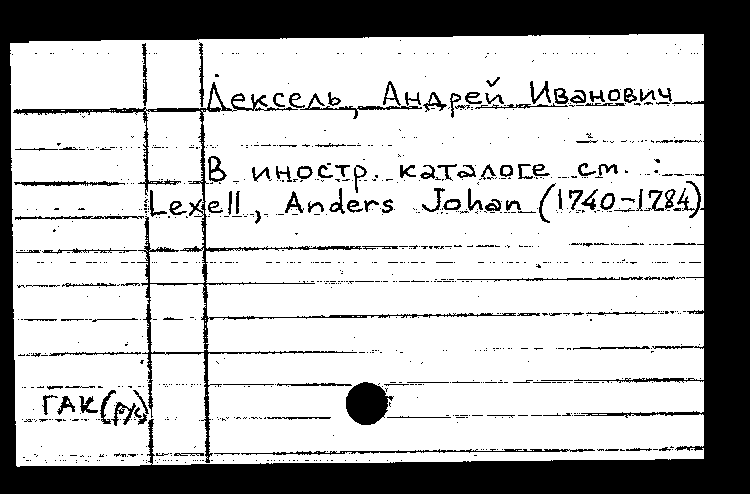 Лексель, Андрей Иванович
В иностр. каталоге см. :
Lexell, Anders Johan (1740-1784)
ГАК(рус)